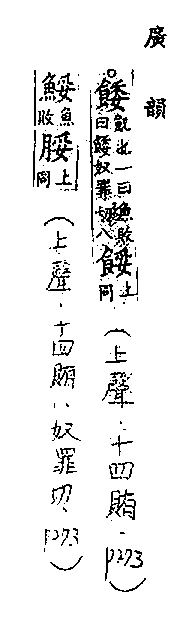 廣韻
○餧飢也一曰魚敗曰餧奴罪切八餒上同（上聲．十四賄．P273）
鮾魚敗脮上同（上聲．十四賄．奴罪切．P273）